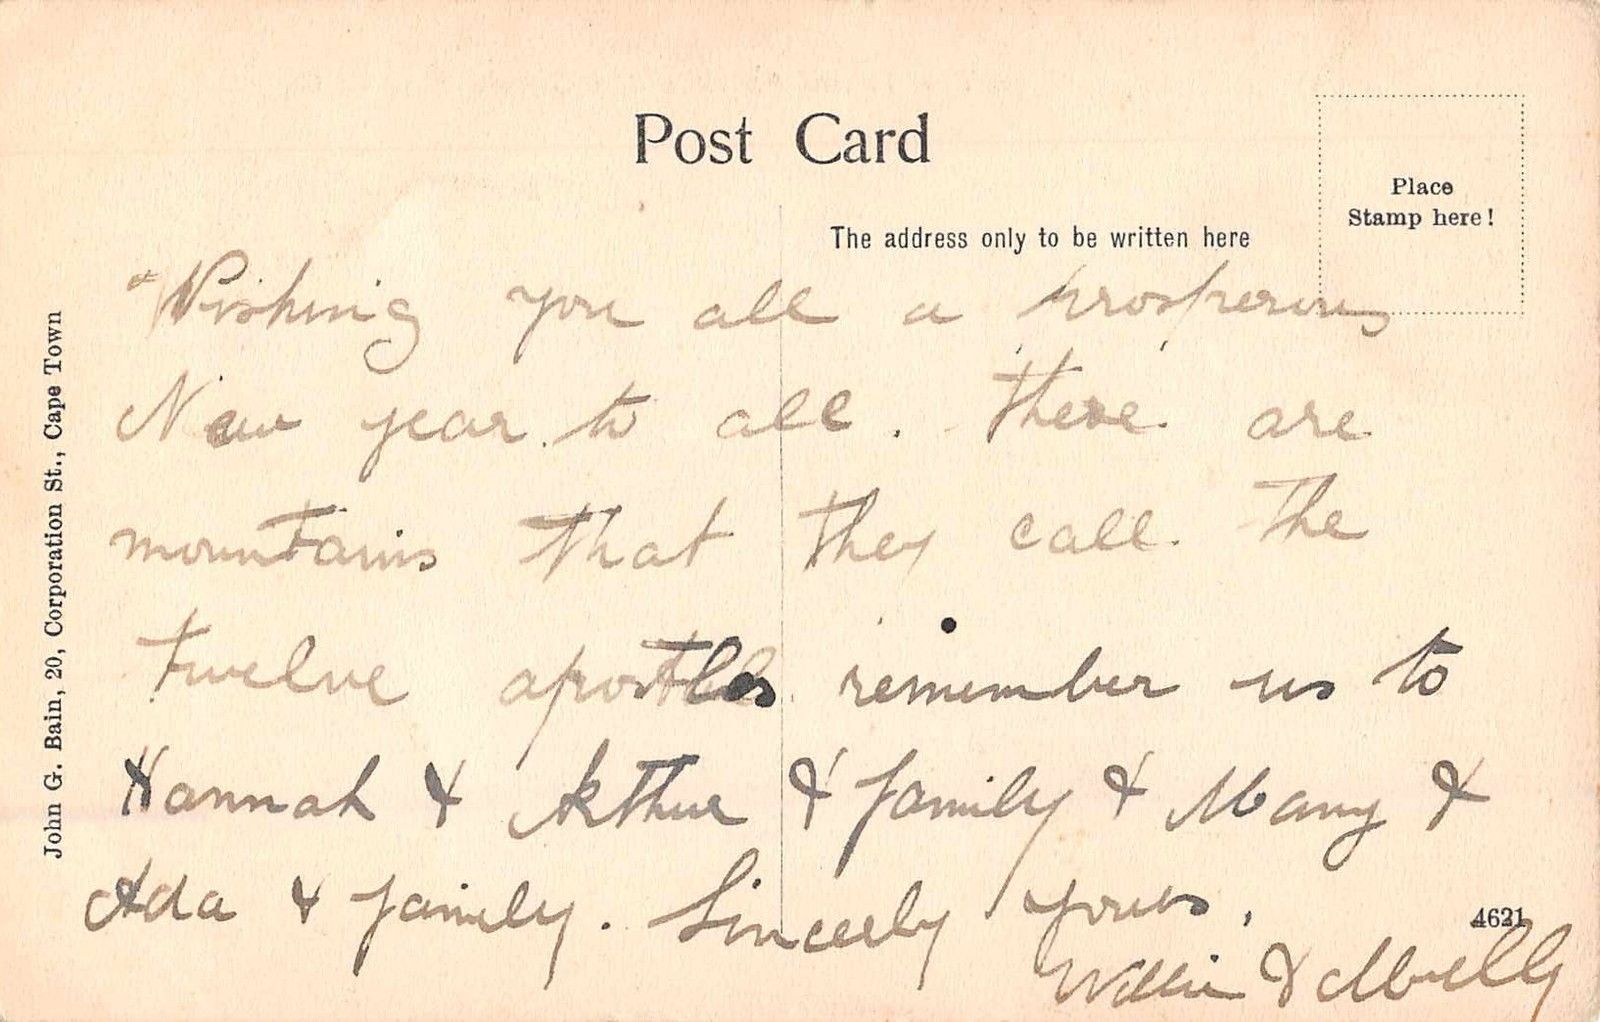 Post Card
Place
Stamp here!
The address only to be written here
John G. Bain, 20, Corporation St., Cape Town
Wishing you all a prosperous
New year to all. there are
mountains that they call. The
twelve apostles remember us to
Hannah & Arthur & family & Mary &
Ada & family. Sincerly yours,
4621
Willie &